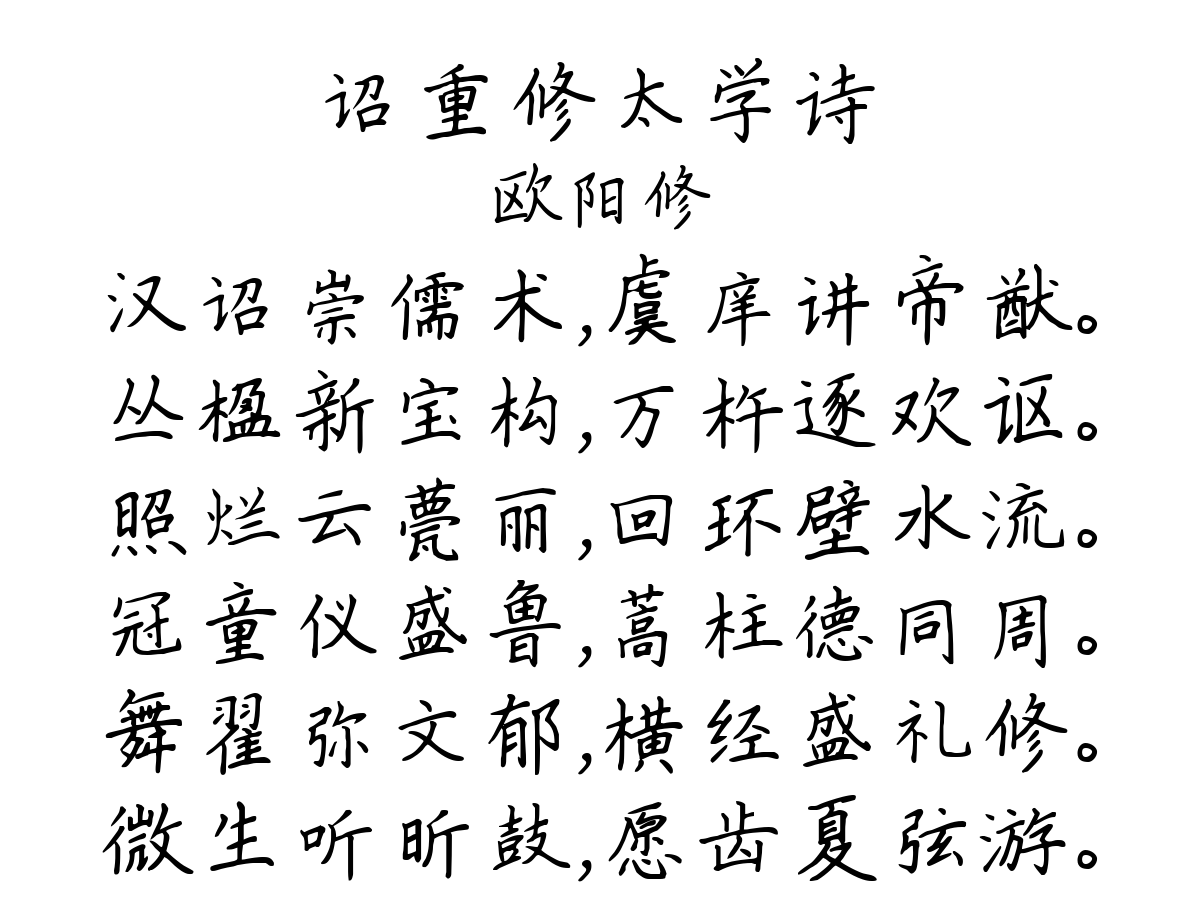 诏重修太学诗
欧阳修
汉诏崇儒术,虞庠讲帝猷。
丛楹新宝构,万杵逐欢讴。
照烂云甍丽,回环璧水流。
冠童仪盛鲁,蒿柱德同周。
舞翟弥文郁,横经盛礼修。
微生听昕鼓,愿齿夏弦游。